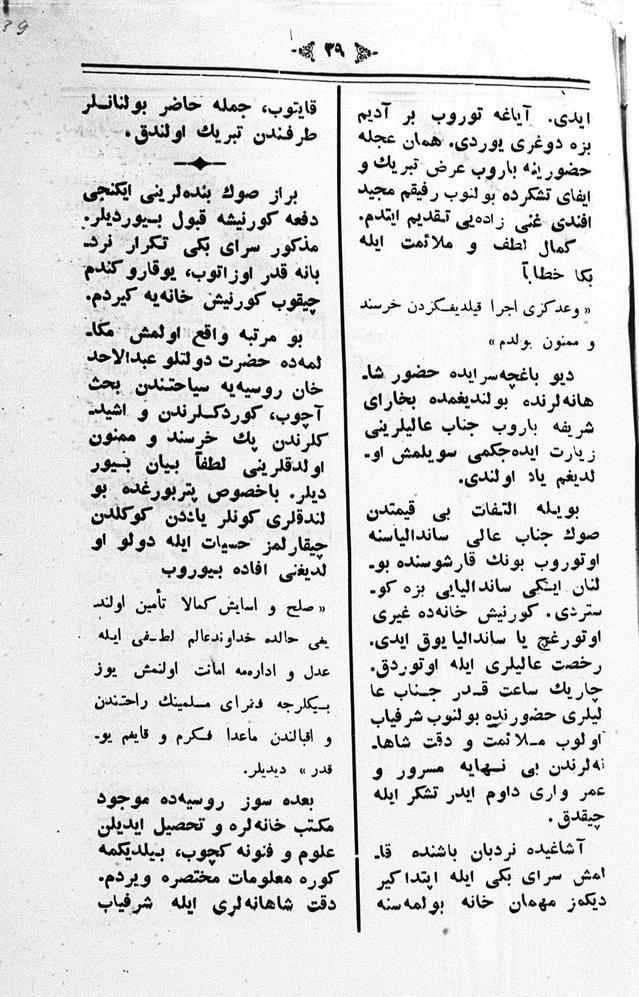 39
٣٩
ايدى. آياغه توروب بر آديم
بزه دوغرى يوردى. همان عجله
حضورينه باروب عرض تبريك و
ايفاى تشكرده بولنوب رفيقم مجيد
افندى غنى زاده‌يى تقديم ايتدم.
كمال لطف و ملائمت ايله
بكا خطاباً
«وعدكزى اجرا قيلديغكزدن خرسند
و ممنون بولدم»
ديو باغچه سرايده حضور شا-
هانه‌لرنده بولنديغمده بخاراى
شريفه باروب جناب عاليلرينى
زيارت ايده‌جكمى سويلمش او-
لديغم ياد اولندى.
بويله التفات بى قيمتدن
صوك جناب عالى ساندالياسنه
اوتوروب بونك قارشوسنده بو-
لنان ايكى ساندالیایى بزه كو-
ستردى. كورنيش خانه‌ده غيرى
اوتورغچ يا ساندالیا يوق ايدى.
رخصت عاليلرى ايله اوتوردق.
چاريك ساعت قدر جناب عا
ليلرى حضورنده بولنوب شرفياب
اولوب ملائمت و دقت شاها-
نه‌لرندن بى نهايه مسرور و
عمر وارى داوم ايدر تشكر ايله
چيقدق.
آشاغيده نردبان باشنده قا-
لمش سراى بكى ايله ابتدا كير
ديكمز مهمان خانه بولمه‌سنه
قايتوب، جمله حاضر بولنانلر
طرفندن تبريك اولندق.
براز صوك بنده‌لرينى ايكنجى
دفعه كورنيشه قبول بيورديلر.
مذكور سراى بكى تكرار نرد-
بانه قدر اوزاتوب، يوقارو كندم
چيقوب كورنيش خانه‌يه كيردم.
بو مرتبه واقع اولمش مكا-
لمه‌ده حضرت دولتلو عبدالاحد
خان روسيه‌يه سياحتندن بحث
آچوب، كوردكلرندن و اشيد-
كلرندن پك خرسند و ممنون
اولدقلرينى لطفاً بيان بيور
ديلر. باخصوص پتربورغده بو
لندقلرى كونلر ياددن كوكلدن
چيقارلمز حسيات ايله دولو او
لديغنى افاده بيوروب
«صلح و اسايش كمالا تأمين اولند
يغى حالده خداوندعالم لطفى ايله
عدل و اداره‌مه امانت اولنمش يوز
بيكلرجه فقراى مسلمينك راحتندن
و اقبالندن ماعدا فكرم و قايغم يو-
قدر» ديديلر.
بعده سوز روسيه‌ده موجود
مكتب خانه‌لره و تحصيل ايديلن
علوم و فنونه كچوب، بيلديكمه
كوره معلومات مختصره ويردم.
دقت شاهانه‌لرى ايله شرفياب